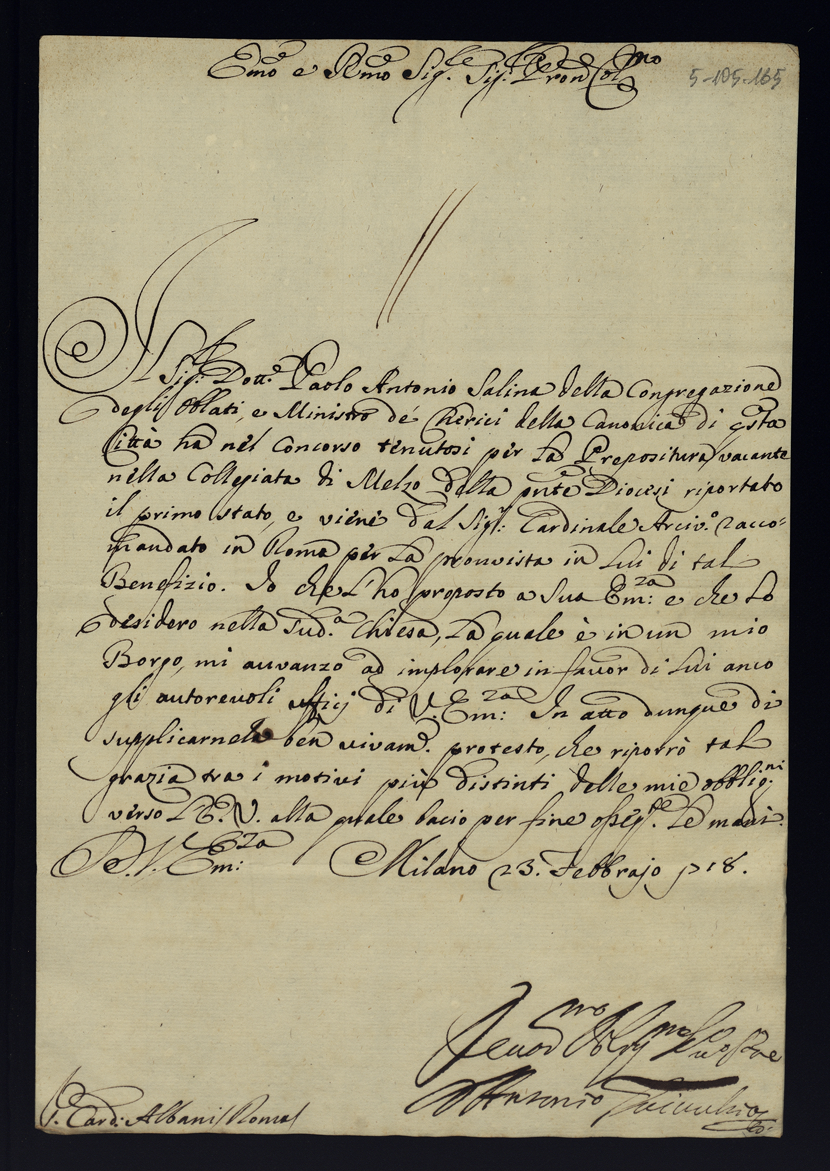 Emo e Rmo Sig.re Sig.re Pron Col.mo
5-105-165
Il Sig.r Dott.e Paolo Antonio Salina della Congregazione
degli Oblati, e Ministro de' Cherici della Canonica di q̃sta
Città ha nel Concorso tenutosi per la Prepositura vacante
nella Collegiata di Melzo della pñte Diocesi riportato
il primo stato, e viene dal Sig.r Cardinale Arciv.o racco-
mandato in Roma per la provvista in lui di tal
Benefizio. Io che l'ho proposto a Sua Em:za e che lo
desidero nella Sud.a Chiesa, la quale è in un mio
Borgo, mi avvanzo ad implorare in favor di lui anco
gli autorevoli ufficj di V. Em:za In atto dunque di
supplicarnela ben vivam.e protesto, che riporrò tal
grazia tra i motivi più distinti delle mie obblig.ni
verso l'E. V. alla quale bacio per fine osseq.te le mani.
D. V. Em:za Milano 23. Febbrajo 1718.
Devot.mo Oblig.mo Servitore
Antonio Trivulzio
S. Card: Albani Roma